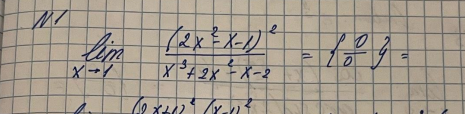 N1
lim x→1 (2x²-x-1)² / (x³+2x²-x-2) = {0/0} =
lim (2x+1)² (x-1)²